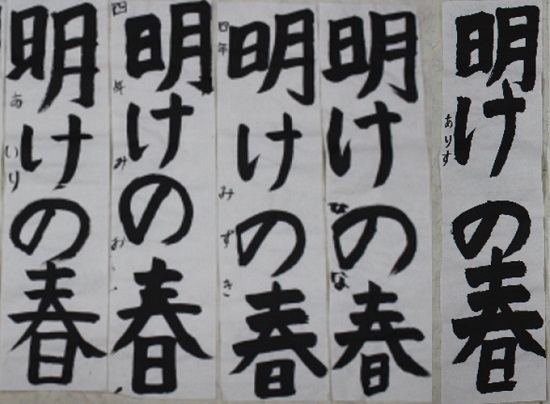 明けの春
ありす
明けの春
なな
明けの春
四年 みずき
明けの春
四年 みお
明けの春
あいり